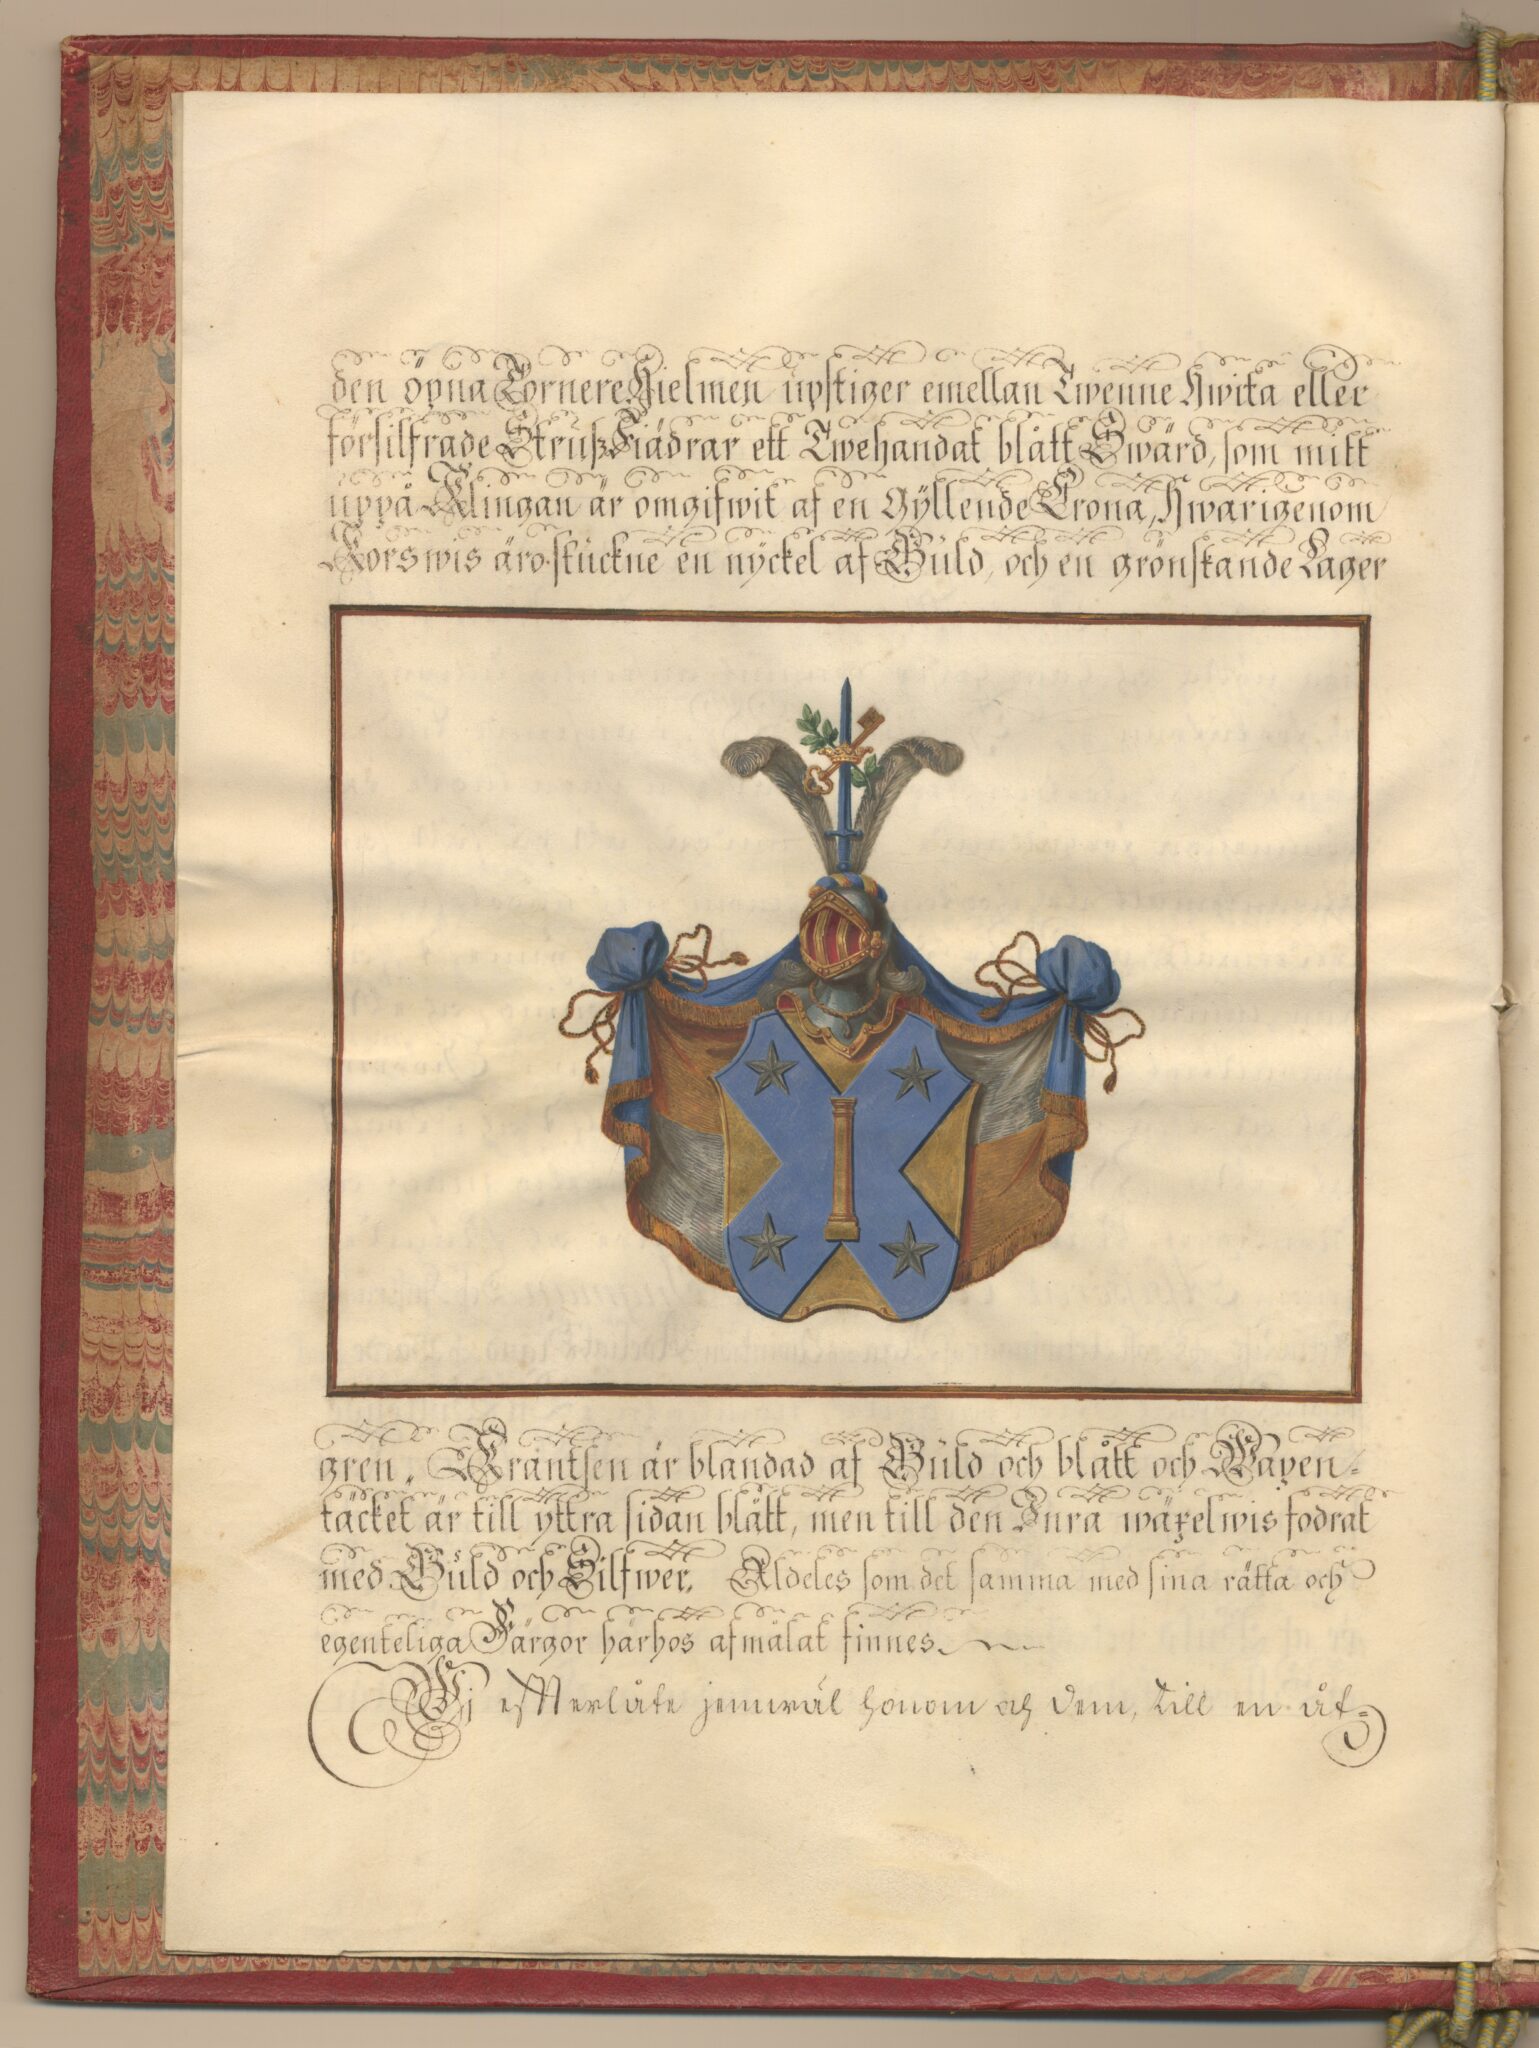 den öpna Tornere Hielmen upstiger emellan Twenne Hwita eller
försilfrade Struß Fiädrar ett Twehandat blått Swärd, som mitt
uppå Klingan är omgifwit af en Gyllende Crona, Hwarigenom
Korswis äro stuckne en nyckel af Guld, och en grönskande Lager
gren. Kräntsen är blandad af Guld och blått och Wapen-
täcket är till yttra sidan blått, men till den Inra wäxelwis fodrat
med Guld och Silfwer. Aldeles som det samma med sina rätta och
egenteliga Färgor härhos afmålat finnes.
Wj efterlåte jemwäl honom och dem, till en åt-